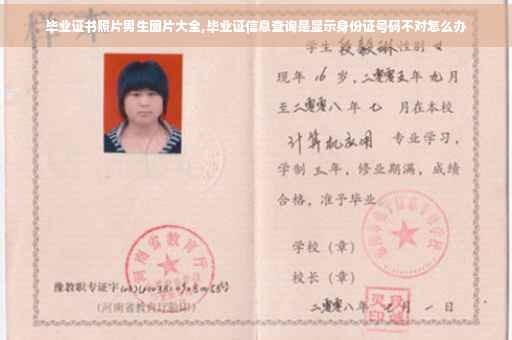 毕业证书照片男生图片大全,毕业证信息查询是显示身份证号码不对怎么办
样本
学生 段毅琳 性别 女
现年 16 岁,二零零五年 九月
至二零零八年 七 月在本校
计算机应用 专业学习,
学制 三年,修业期满,成绩
合格,准予毕业
学校(章)
校长(章)
二零零八年 七 月 一 日
河南省教育厅
豫教职专证字
(河南省教育厅验印)